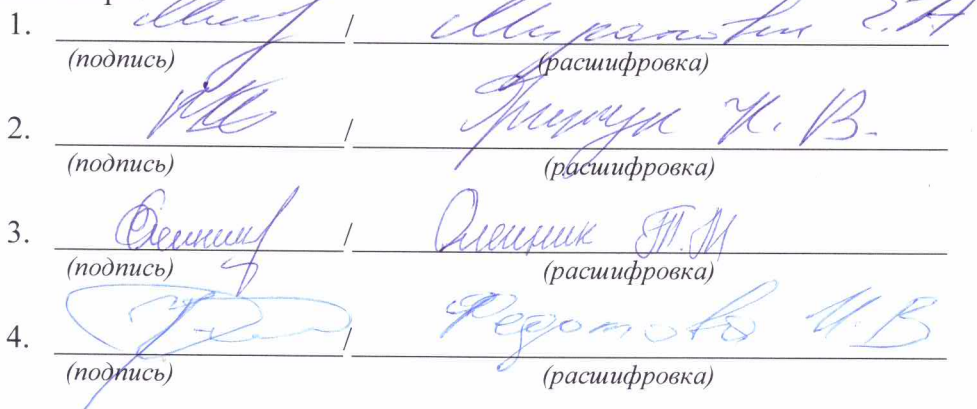 1. / Миранович Е.Н
(подпись) (расшифровка)
2. / К. В.
(подпись) (расшифровка)
3. / Олейник Т.М
(подпись) (расшифровка)
4. / Федотова И. В
(подпись) (расшифровка)